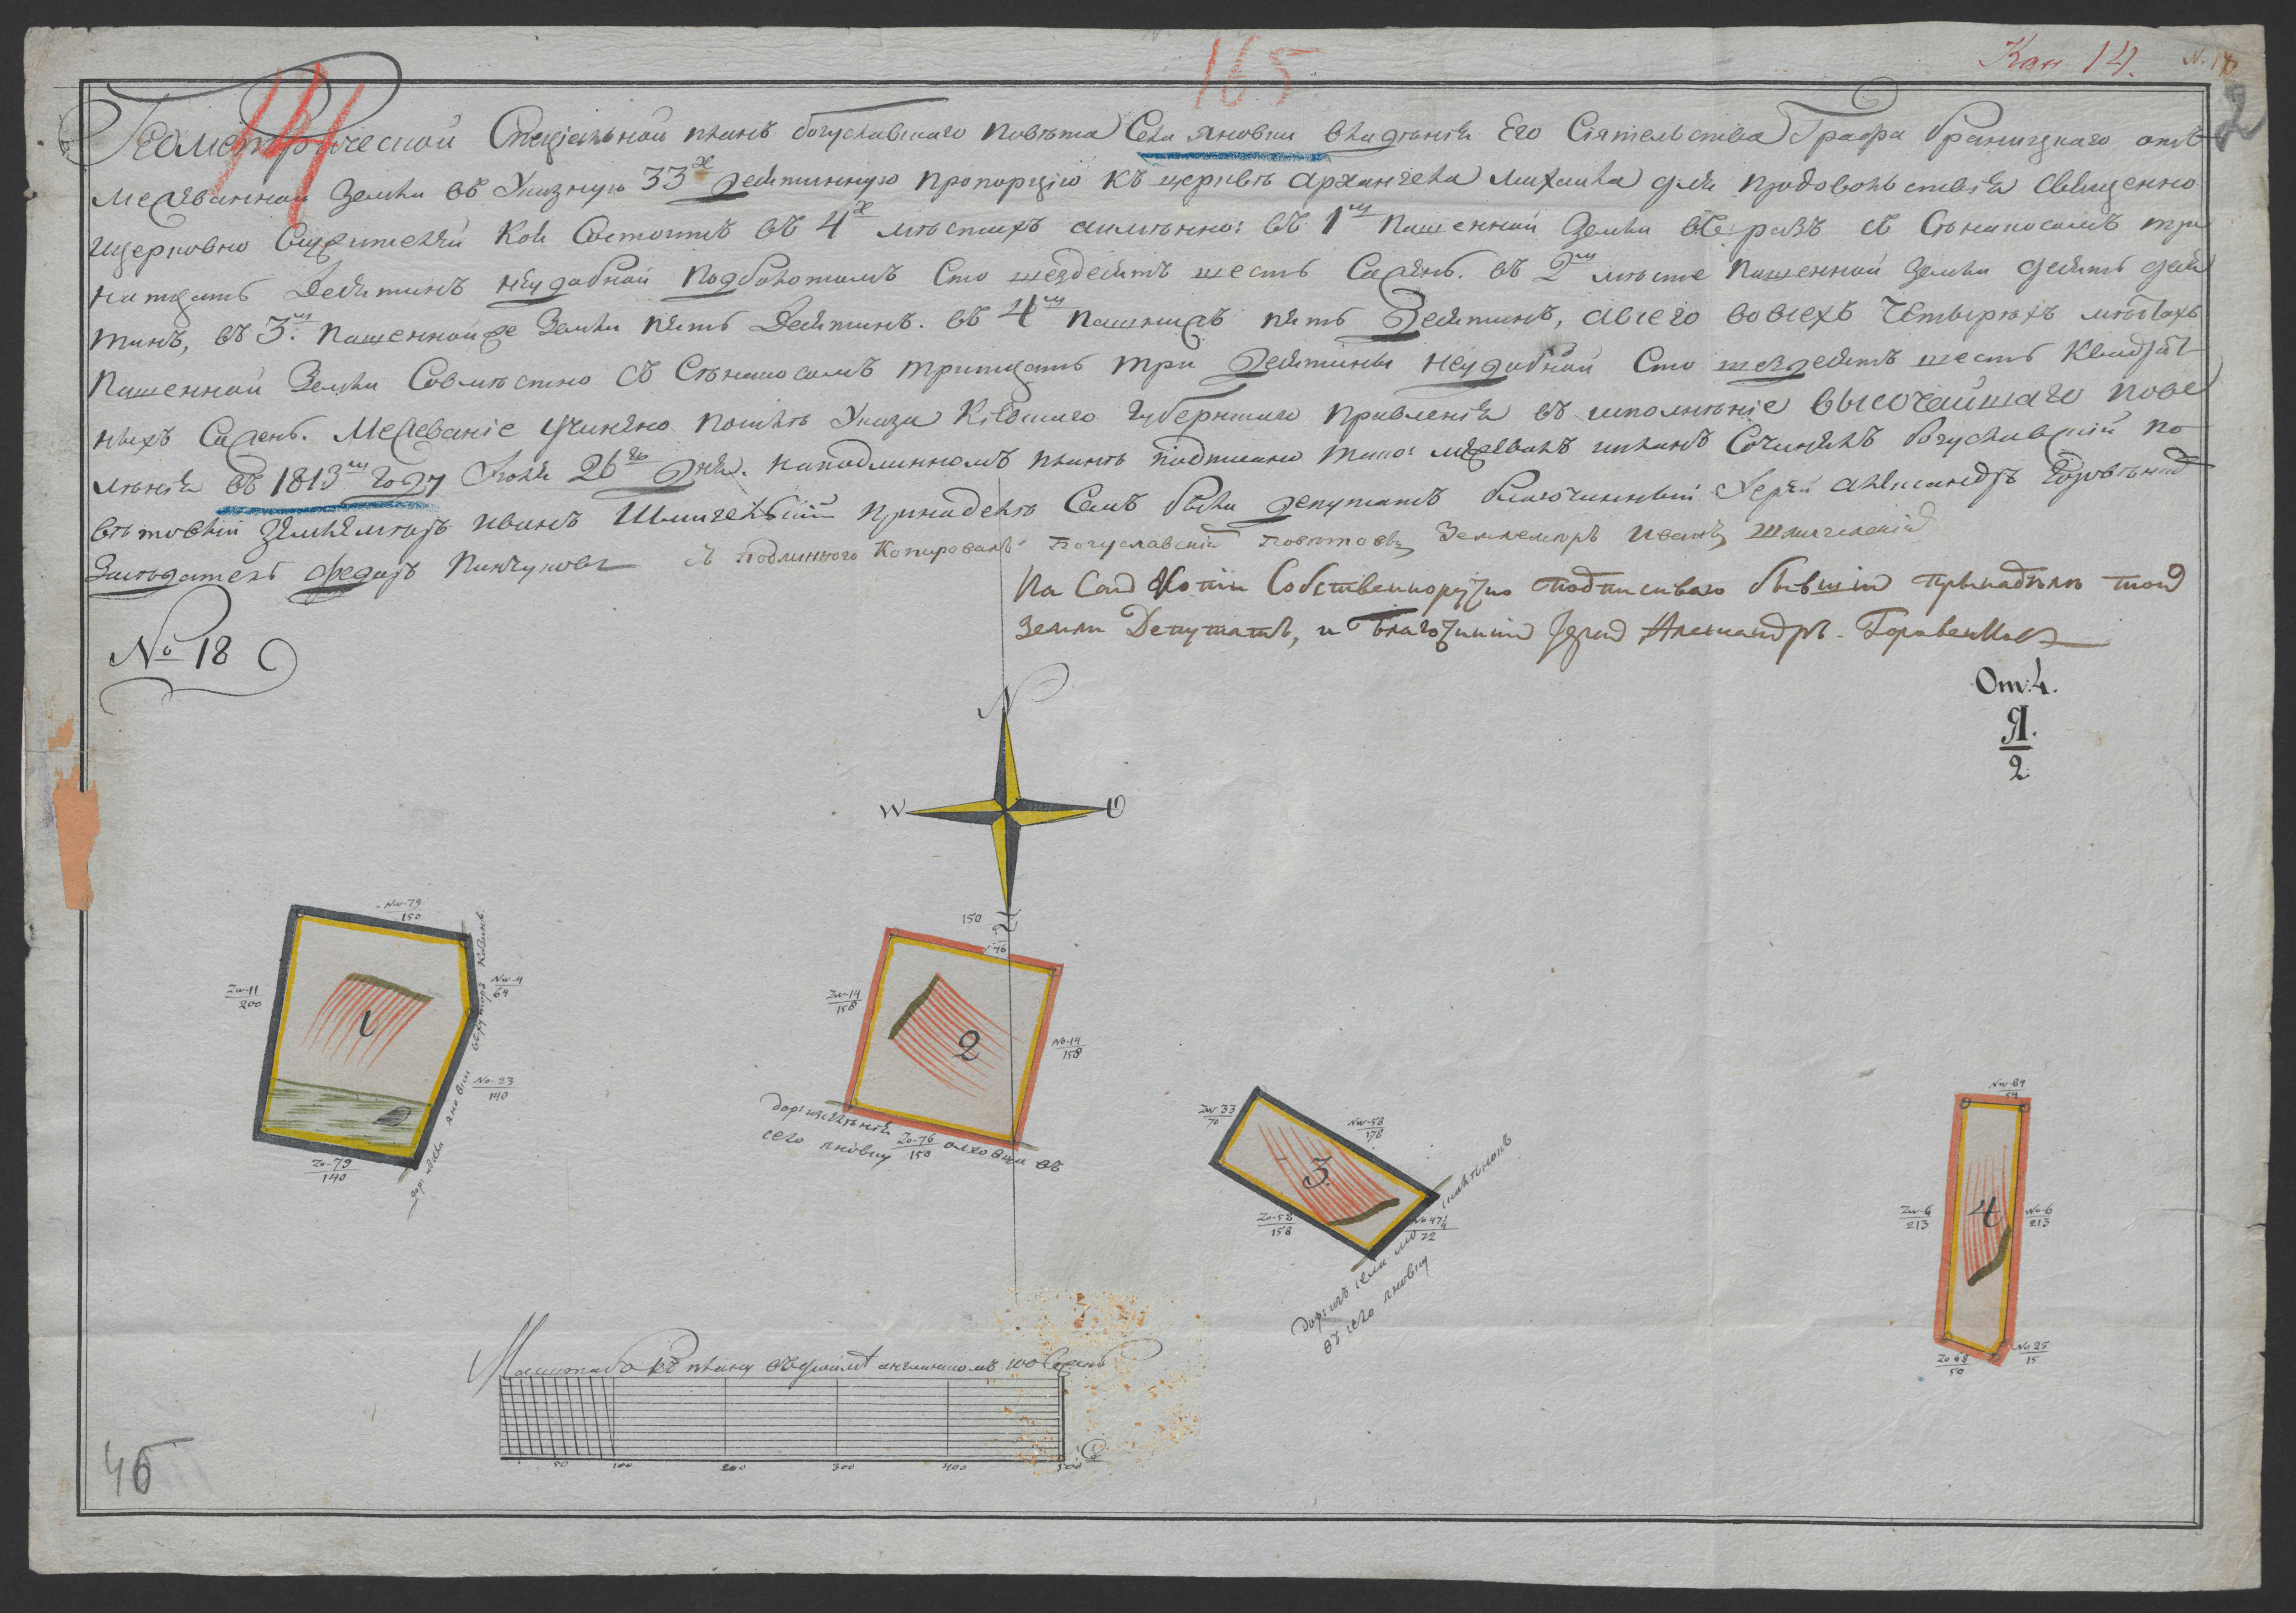 165
Кап 14. N. 18
2
141
Геометрической Спеціальной планъ богуславскаго Повѣта Села яновки владѣнія Его Сіятельства Графа браницкаго отъ
межеванной Земли въ Указную 33х десятинную пропорцію Къ церквѣ архангела михаила для продовольствія священно
церковно Служителей Кои Состоитъ въ 4х мѣстахъ аимянно: въ 1м Пашенной Земли съ Сѣнокосомъ три
натцать Десятинъ неудобной подболотомъ Сто шездесятъ шесть Саженъ. въ 2м мѣсте Пашенной Земли десять деся
тинъ, въ 3м. Пашенной же Земли пять Десятинъ. въ 4м пашенна пять Десятинъ, авсего вовсехъ четырѣхъ мѣстахъ
Пашенной Земли Совмѣстно съ Сѣнокосомъ тритцать три десятины неудобной Сто шездесятъ шесть Квадрат
ныхъ Саженъ. Межеваніе учинено послѣ Указа Кіевскаго губернскаго правленія въ исполнѣніе высочайшаго пове
лѣнія въ 1813м году Іюня 26го дня. наподлинномъ планѣ подписано тако: межевалъ ипланъ Сочинялъ богуславскій по
вѣтовый Землемѣръ иванъ Шмигельскій принаделѣ Семъ былъ депутатъ благочинный Іерей александръ
Засѣдатель федоръ Пинчуковъ Съ Подлиннаго Копировалъ Богуславскій Повѣтовый Землемѣръ Иванъ Шмигелскій
На Сей Копіи Собственноручно подписываю бывшій принадѣлѣ той
земли Депутатъ, и Благочинній Іерей Александръ
№ 18
От. 4.
Я.
2
N
W O
Nw-79
150
Zw-11
200
Nw-4
64
No-23
140
Zo-79
140
1
150
76
Zw-14
158
No-14
158
Zo-76
150
2
сего яновки олховца въ
Zw 33
70
Nw-58
178
Zo-58
158
No 47¼
72
3
въ сего яновку
Nw-84
54
Zw-6
213
No-6
213
Zo 64
50
No 25
15
4
Маштабъ Къ плану въ дюймѣ англинскомъ 100 Саженъ
50 100 200 300 400 500 С
46